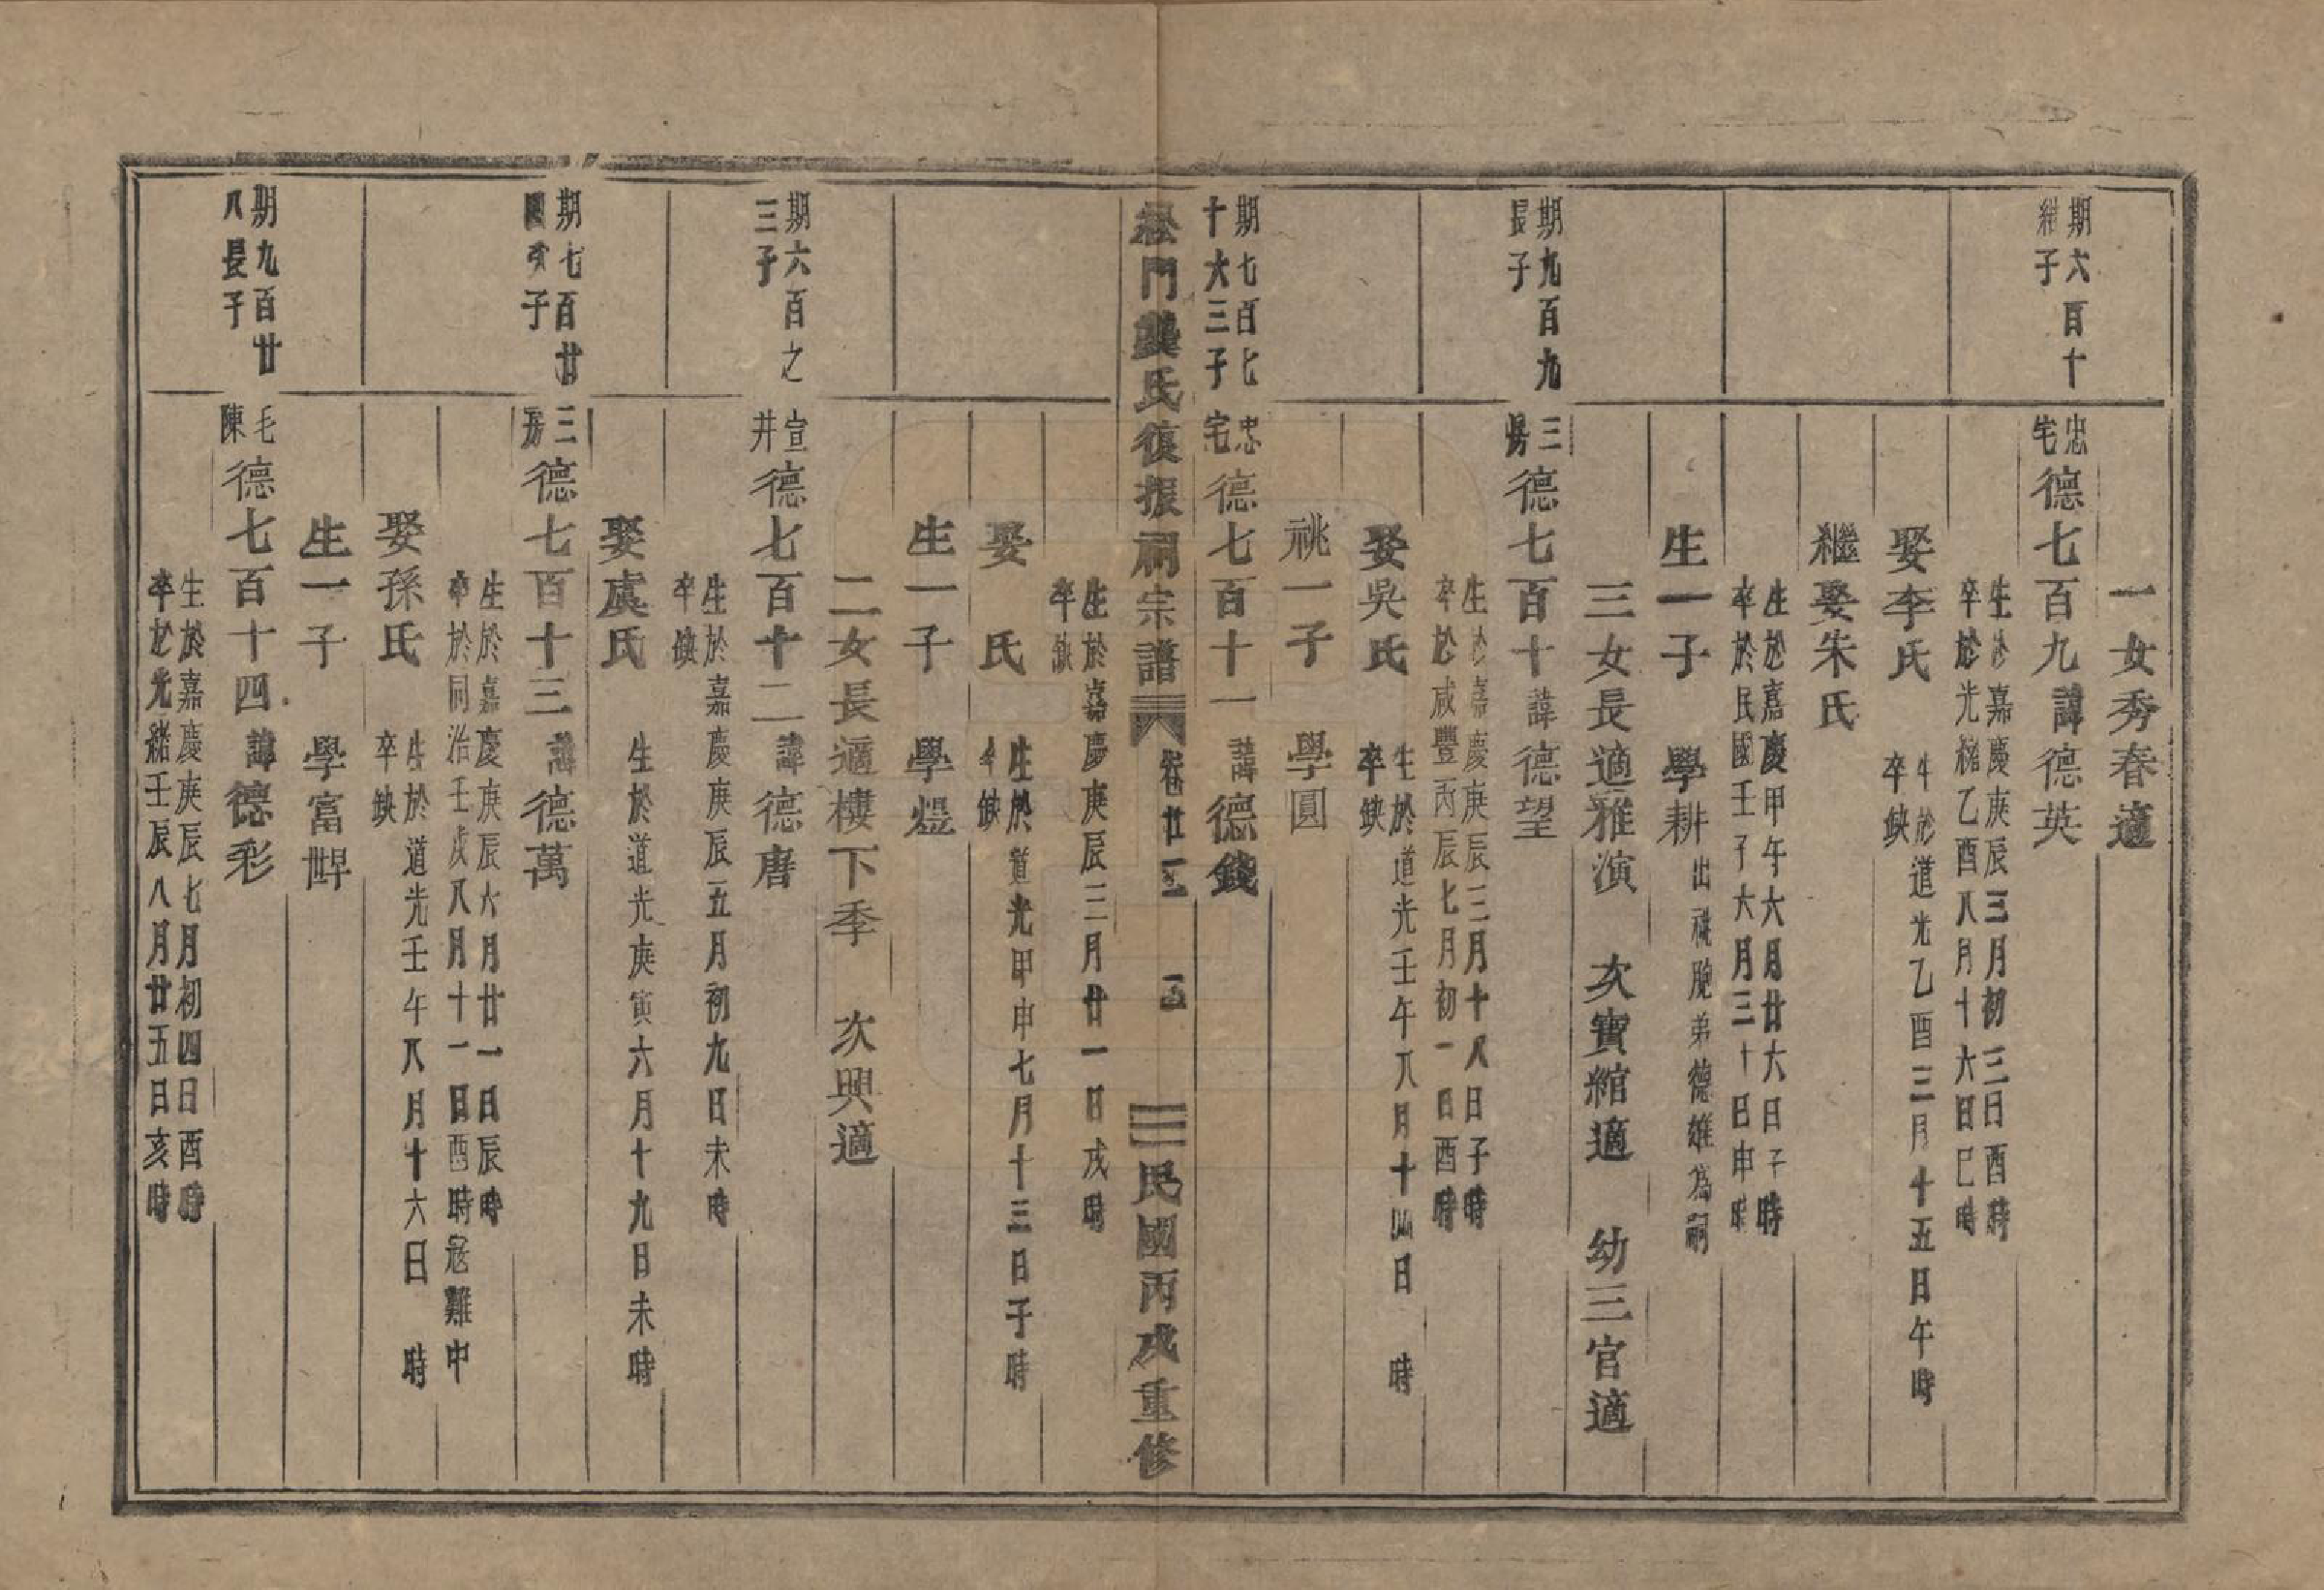 一女秀春適
期六百十
紺子
忠
宅
德七百九諱德英
生於嘉慶庚辰三月初三日酉時
卒於光緒乙酉八月十六日巳時
娶李氏
生於道光乙酉三月十五日午時
卒缺
繼娶朱氏
生於嘉慶甲午六月廿六日子時
卒於民國壬子六月三十日申時
生一子 學耕 出繼胞弟德雄為嗣
三女長適雅演 次寶綰適 幼三官適
期九百九
長子
三
房
德七百十諱德望
生於嘉慶庚辰三月十八日子時
卒於咸豐丙辰七月初一日酉時
娶吳氏
生於道光壬午八月十四日 時
卒缺
祧一子 學圓
期七百七
十六三子
忠
宅
德七百十一諱德錢
松門龔氏復振祠宗譜 卷廿三 民國丙戌重修
生於嘉慶庚辰三月廿一日戌時
卒缺
娶 氏
生於道光甲申七月十三日子時
卒缺
生一子 學煜
二女長適樓下季 次興適
期六百之
三子
宣
井
德七百十二諱德唐
生於嘉慶庚辰五月初九日未時
卒缺
娶虞氏
生於道光庚寅六月十九日未時
期七百廿
三
房
德七百十三諱德萬
生於嘉慶庚辰六月廿一日辰時
卒於同治壬戌八月十一日酉時寇難中
娶孫氏
生於道光壬午八月十六日 時
卒缺
生一子 學富
期九百廿
八長子
毛
陳
德七百十四諱德彩
生於嘉慶庚辰七月初四日酉時
卒於光緒壬辰八月廿五日亥時